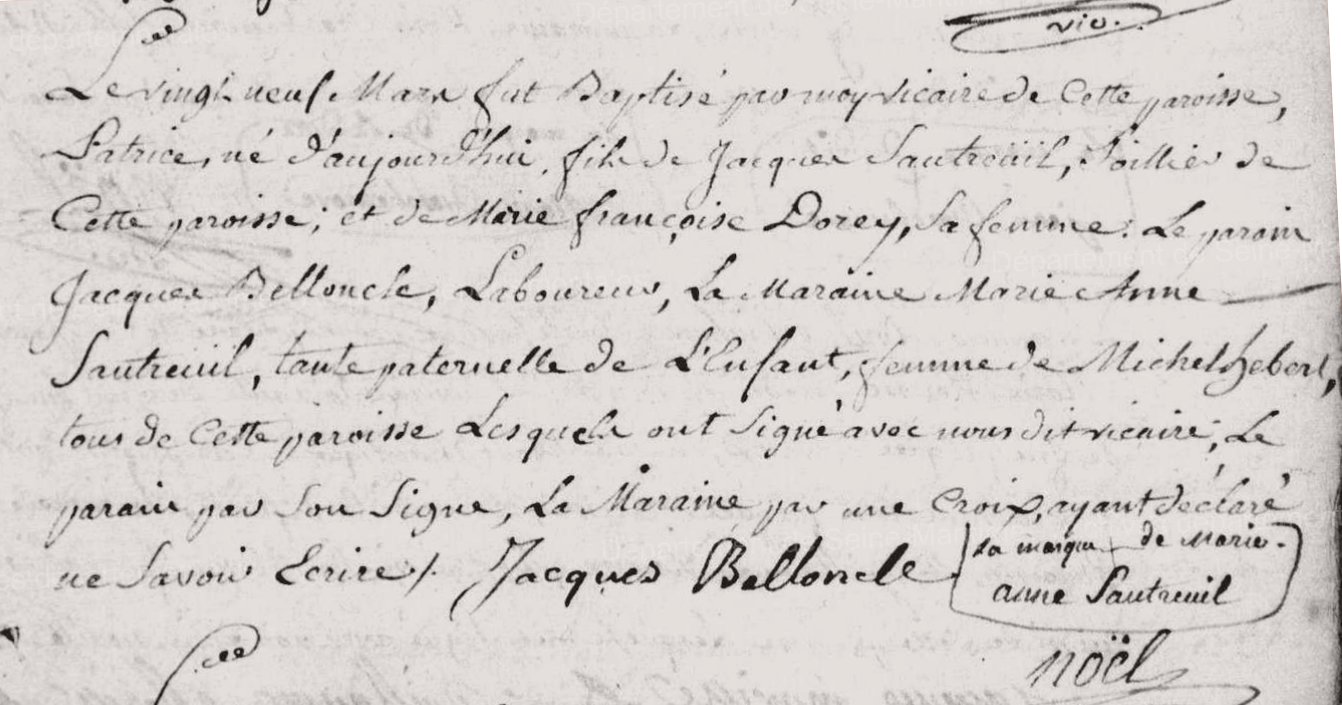 vic.
Le vingt neuf Mars fut Baptisé par moy vicaire de Cette paroisse,
Patrice, né d'aujourd'hui, fils de Jacques Sautreüil, Toillier de
Cette paroisse; et de Marie françoise Dorey, sa femme. Le parain
Jacques Belloncle, Laboureur, La Maraine Marie Anne
Sautreuil, tante paternelle de L'Enfant, femme de Michel hebert,
tous de Cette paroisse Lesquels ont signé avec nous dit vicaire, Le
parain par son signe, La Maraine par une Croix, ayant déclaré
ne savoir Ecrire /. Jacques Belloncle
la marque + de Marie.
anne Sautreuil
noël